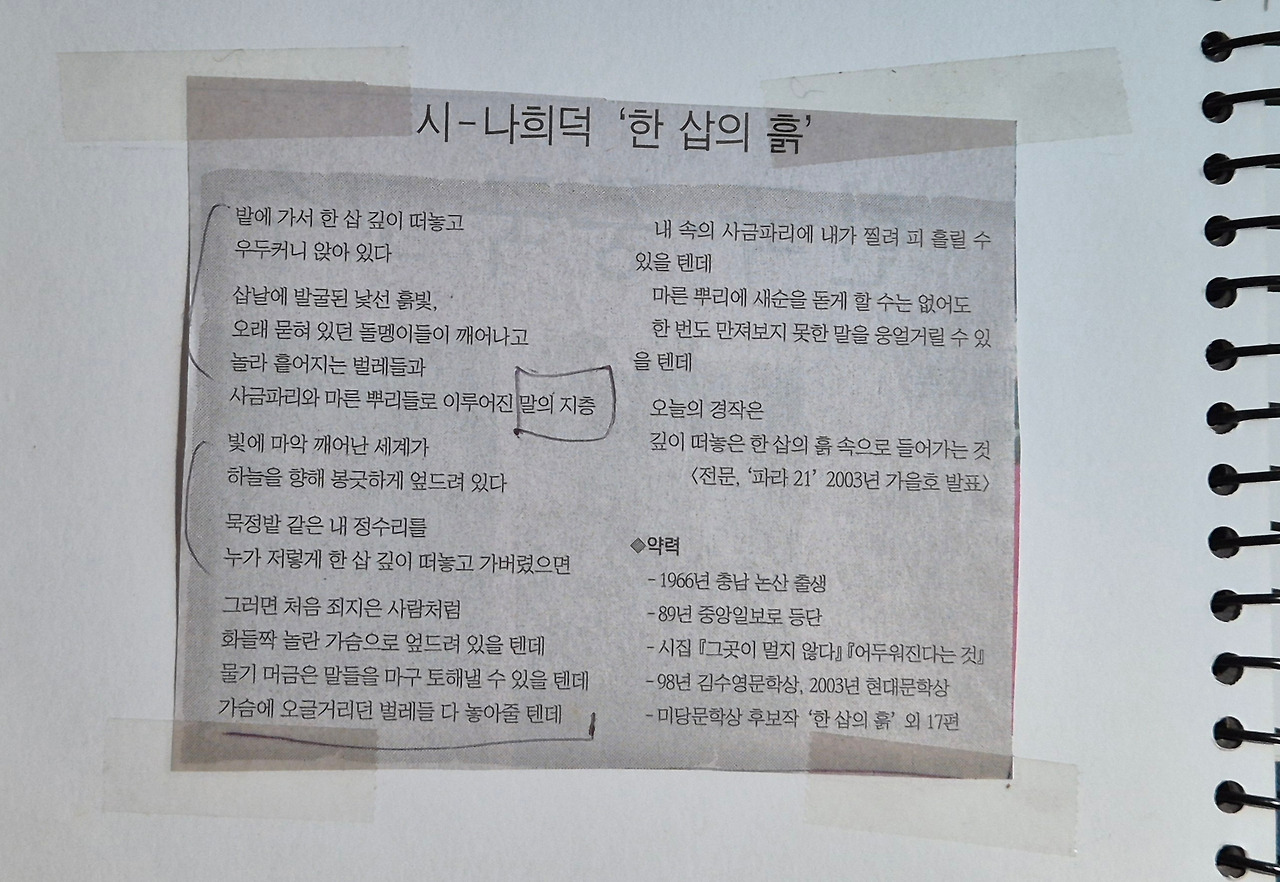 시-나희덕 '한 삽의 흙'
밭에 가서 한 삽 깊이 떠놓고
우두커니 앉아 있다
삽날에 발굴된 낯선 흙빛,
오래 묻혀 있던 돌멩이들이 깨어나고
놀라 흩어지는 벌레들과
사금파리와 마른 뿌리들로 이루어진 말의 지층
빛에 마악 깨어난 세계가
하늘을 향해 봉긋하게 엎드려 있다
묵정밭 같은 내 정수리를
누가 저렇게 한 삽 깊이 떠놓고 가버렸으면
그러면 처음 죄지은 사람처럼
화들짝 놀란 가슴으로 엎드려 있을 텐데
물기 머금은 말들을 마구 토해낼 수 있을 텐데
가슴에 오글거리던 벌레들 다 놓아줄 텐데
내 속의 사금파리에 내가 찔려 피 흘릴 수
있을 텐데
마른 뿌리에 새순을 돋게 할 수는 없어도
한 번도 만져보지 못한 말을 웅얼거릴 수 있
을 텐데
오늘의 경작은
깊이 떠놓은 한 삽의 흙 속으로 들어가는 것
〈전문, '파라 21' 2003년 가을호 발표〉
◈약력
-1966년 충남 논산 출생
-89년 중앙일보로 등단
-시집 『그곳이 멀지 않다』『어두워진다는 것』
-98년 김수영문학상, 2003년 현대문학상
-미당문학상 후보작 '한 삽의 흙' 외 17편